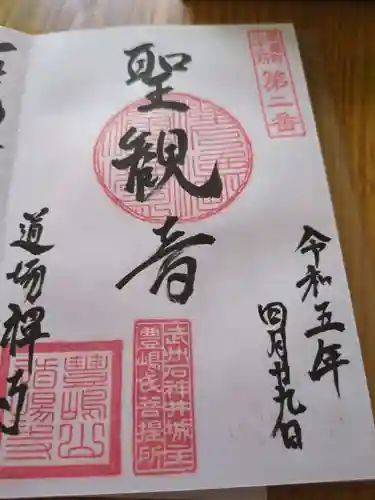 第二番
令和五年
四月廿九日
聖観音
武州石神井城主
豊嶋氏菩提所
道場禅寺
豊嶋山
道場寺